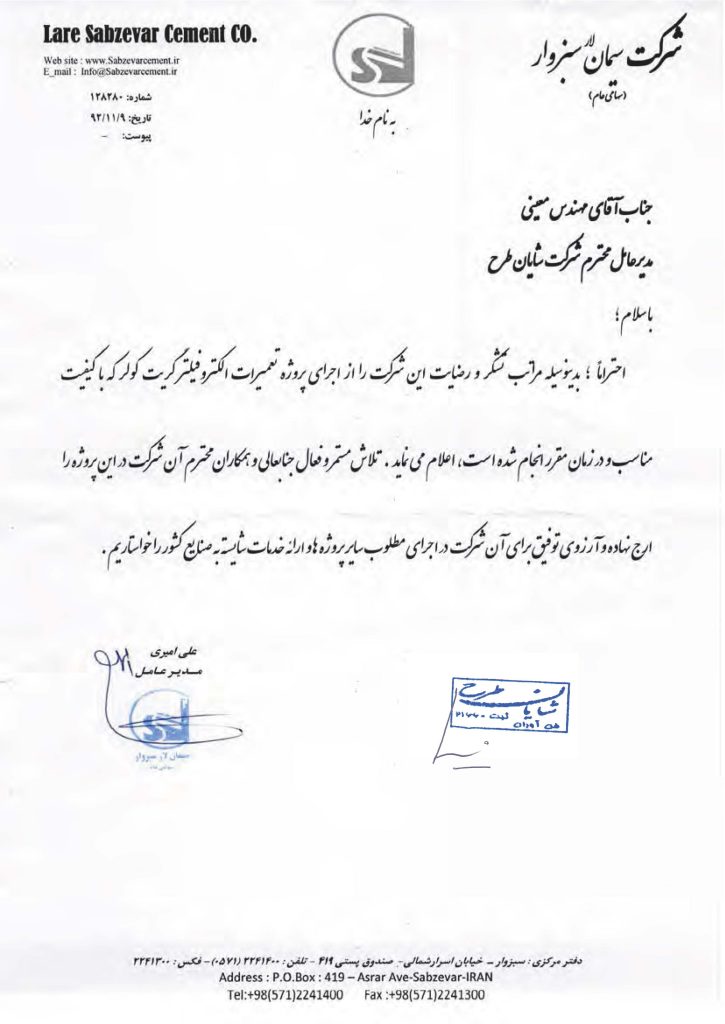 Lare Sabzevar Cement CO.
Web site : www.Sabzevarcement.ir
E_mail : Info@Sabzevarcement.ir
شماره: ۱۲۸۲۸۰
تاریخ: ۹۲/۱۱/۹
پیوست: –
به نام خدا
شرکت سیمان لار سبزوار
(سهامی عام)
جناب آقای مهندس معینی
مدیرعامل محترم شرکت شایان طرح
باسلام ؛
احتراماً ؛ بدینوسیله مراتب تشکر و رضایت این شرکت را از اجرای پروژه تعمیرات الکتروفیلتر گریت کولر که با کیفیت
مناسب و در زمان مقرر انجام شده است، اعلام می نماید . تلاش مستمر و فعال جنابعالی و همکاران محترم آن شرکت در این پروژه را
ارج نهاده و آرزوی توفیق برای آن شرکت در اجرای مطلوب سایر پروژه ها و ارائه خدمات شایسته به صنایع کشور را خواستاریم .
علی امیری
مدیر عامل
سیمان لار سبزوار
شایان طرح
فن آوران
ثبت
دفتر مرکزی : سبزوار – خیابان اسرارشمالی- صندوق پستی ۴۱۹ - تلفن : ۲۲۴۱۴۰۰ (۰۵۷۱) – فکس : ۲۲۴۱۳۰۰
Address : P.O.Box : 419 – Asrar Ave-Sabzevar-IRAN
Tel:+98(571)2241400 Fax :+98(571)2241300